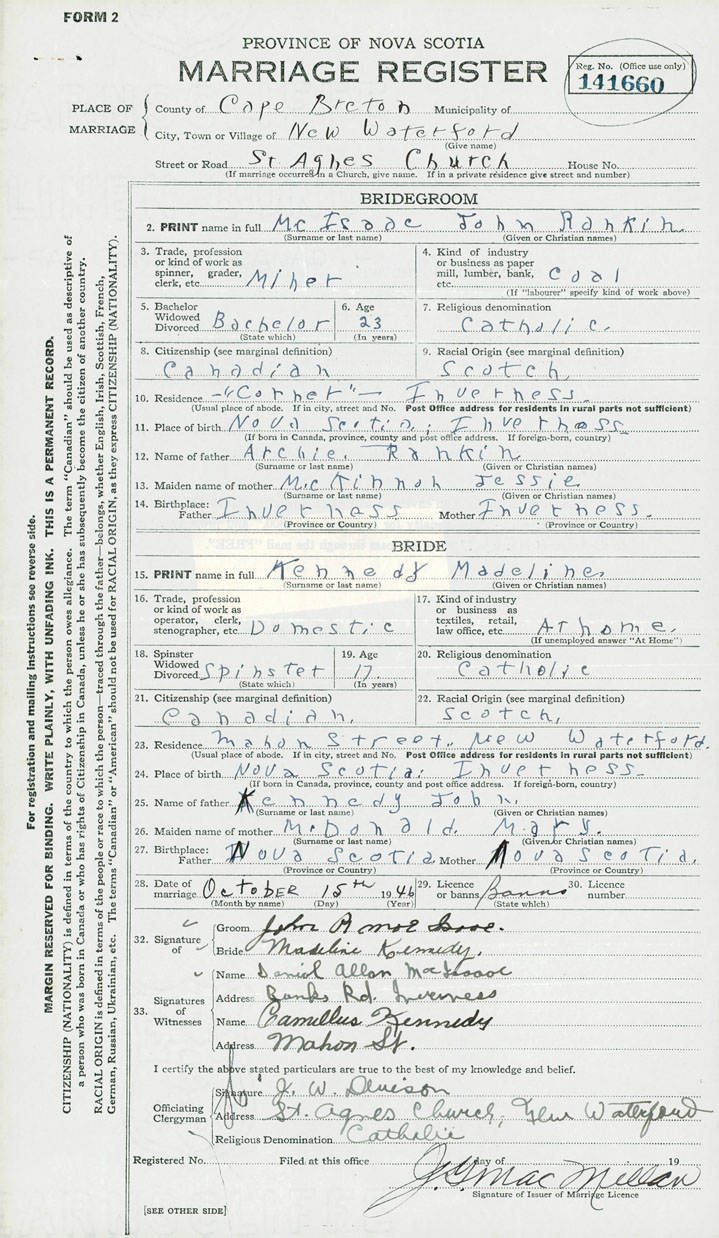 FORM 2
PROVINCE OF NOVA SCOTIA
MARRIAGE REGISTER
Reg. No. (Office use only)
141660
PLACE OF MARRIAGE
County of Cape Breton Municipality of
City, Town or Village of New Waterford
(Give name)
Street or Road St Agnes Church House No.
(If marriage occurred in a Church, give name. If in a private residence give street and number)
BRIDEGROOM
2. PRINT name in full Mc Isaac John Rankin
(Surname or last name) (Given or Christian names)
3. Trade, profession or kind of work as spinner, grader, clerk, etc. Miner
4. Kind of industry or business as paper mill, lumber, bank, etc. Coal
(If "labourer" specify kind of work above)
5. Bachelor Widowed Divorced Bachelor
(State which)
6. Age 23
(In years)
7. Religious denomination
Catholic.
8. Citizenship (see marginal definition)
Canadian
9. Racial Origin (see marginal definition)
Scotch
10. Residence "Corner" Inverness
(Usual place of abode. If in city, street and No. Post Office address for residents in rural parts not sufficient)
11. Place of birth Nova Scotia; Inverness
(If born in Canada, province, county and post office address. If foreign-born, country)
12. Name of father Archie. Rankin
(Surname or last name) (Given or Christian names)
13. Maiden name of mother McKinnon Jessie
(Surname or last name) (Given or Christian names)
14. Birthplace: Father Inverness Mother Inverness.
(Province or Country) (Province or Country)
BRIDE
15. PRINT name in full Kennedy Madeline.
(Surname or last name) (Given or Christian names)
16. Trade, profession or kind of work as operator, clerk, stenographer, etc. Domestic
17. Kind of industry or business as textiles, retail, law office, etc. At home.
(If unemployed answer "At Home")
18. Spinster Widowed Divorced Spinster
(State which)
19. Age 17.
(In years)
20. Religious denomination
Catholic
21. Citizenship (see marginal definition)
Canadian.
22. Racial Origin (see marginal definition)
Scotch,
23. Residence Mahon Street. New Waterford.
(Usual place of abode. If in city, street and No. Post Office address for residents in rural parts not sufficient)
24. Place of birth Nova Scotia; Inverness
(If born in Canada, province, county and post office address. If foreign-born, country)
25. Name of father Kennedy John.
(Surname or last name) (Given or Christian names)
26. Maiden name of mother McDonald. Mary.
(Surname or last name) (Given or Christian names)
27. Birthplace: Father Nova Scotia Mother Nova Scotia.
(Province or Country) (Province or Country)
28. Date of marriage October 15th 1946
(Month by name) (Day) (Year)
29. Licence or banns Banns
(State which)
30. Licence number
32. Signature of
Groom John R
Bride Madeline Kennedy.
33. Signatures of Witnesses
Name Daniel Allan MacIsaac
Address Banks Rd. Inverness
Name Camillus Kennedy
Address Mahon St.
I certify the above stated particulars are true to the best of my knowledge and belief.
Officiating Clergyman
Signature J. W. Denison
Address St. Agnes Church, New Waterford
Religious Denomination Catholic
Registered No. Filed at this office day of 19
J. G. MacMillan
Signature of Issuer of Marriage Licence
[SEE OTHER SIDE]
For registration and mailing instructions see reverse side.
MARGIN RESERVED FOR BINDING. WRITE PLAINLY, WITH UNFADING INK. THIS IS A PERMANENT RECORD.
CITIZENSHIP (NATIONALITY) is defined in terms of the country to which the person owes allegiance. The term "Canadian" should be used as descriptive of
a person who was born in Canada or who has rights of Citizenship in Canada, unless he or she has subsequently become the citizen of another country.
RACIAL ORIGIN is defined in terms of the people or race to which the person—traced through the father—belongs, whether English, Irish, Scottish, French,
German, Russian, Ukrainian, etc. The terms "Canadian" or "American" should not be used for RACIAL ORIGIN, as they express CITIZENSHIP (NATIONALITY).